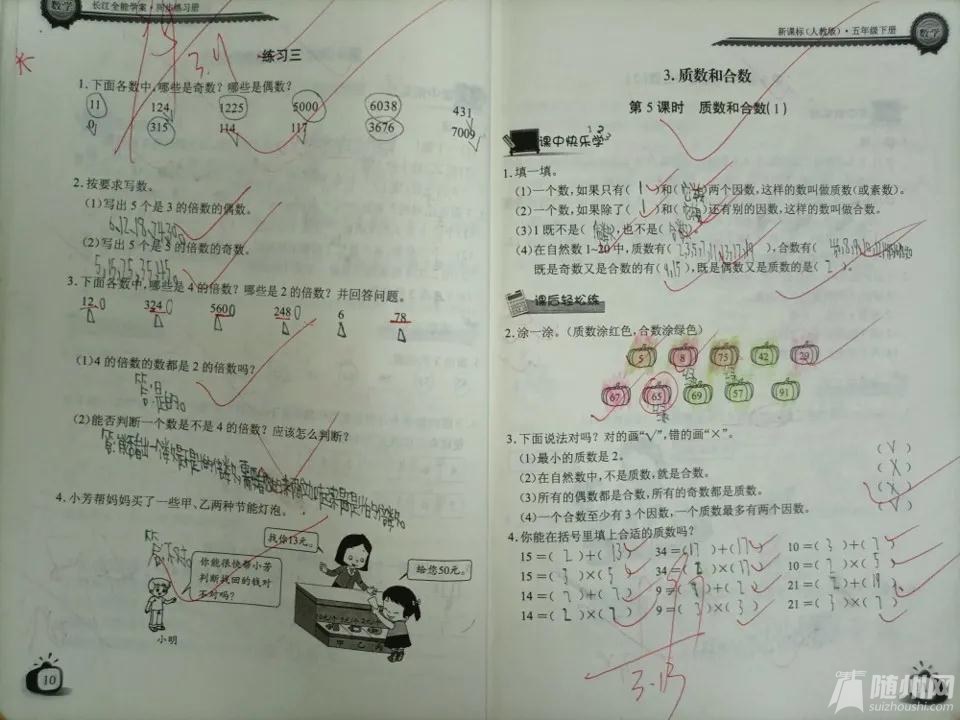 数学
长江全能学案·同步练习册
练习三
3.9
1.下面各数中,哪些是奇数?哪些是偶数?
11 124 1225 5000 6038 431
0 315 114 117 3676 7009
2.按要求写数。
(1)写出5个是3的倍数的偶数。
6,12,18,24,30。
(2)写出5个是5的倍数的奇数。
5,15,25,35,45。
3.下面各数中,哪些是4的倍数?哪些是2的倍数?并回答问题。
12 324 560 248 6 78
(1)4的倍数的数都是2的倍数吗?
答:是的。
(2)能否判断一个数是不是4的倍数?应该怎么判断?
4.小芳帮妈妈买了一些甲、乙两种节能灯泡。
答:不对。
找你13元。
给您50元。
你能很快帮小芳
判断找回的钱对
不对吗?
小明
甲 乙
10
新课标(人教版)·五年级下册
数学
3.质数和合数
第5课时 质数和合数(1)
课中快乐学
1.填一填。
(1)一个数,如果只有( 1 )和( )两个因数,这样的数叫做质数(或素数)。
(2)一个数,如果除了( 1 )和( )还有别的因数,这样的数叫做合数。
(3)1既不是( ),也不是( )。
(4)在自然数1~20中,质数有( ),合数有( ),
既是奇数又是合数的有( 9,15 ),既是偶数又是质数的是( 2 )。
课后轻松练
2.涂一涂。(质数涂红色,合数涂绿色)
5 8 75 42 29
67 65 69 57 91
3.下面说法对吗?对的画“√”,错的画“×”。
(1)最小的质数是2。 (√)
(2)在自然数中,不是质数,就是合数。 (×)
(3)所有的偶数都是合数,所有的奇数都是质数。 (×)
(4)一个合数至少有3个因数,一个质数最多有两个因数。 (√)
4.你能在括号里填上合适的质数吗?
15=( 2 )+( 13 ) 34=( 17 )+( 17 ) 10=( 3 )+( 7 )
15=( 3 )×( 5 ) 34=( 2 )×( 17 ) 10=( 2 )×( 5 )
14=( 7 )+( 7 ) 9=( 7 )+( 2 ) 21=( 2 )+( 19 )
14=( 2 )×( 7 ) 9=( 3 )×( 3 ) 21=( 3 )×( 7 )
3.13
随州网
suizhoushi.com